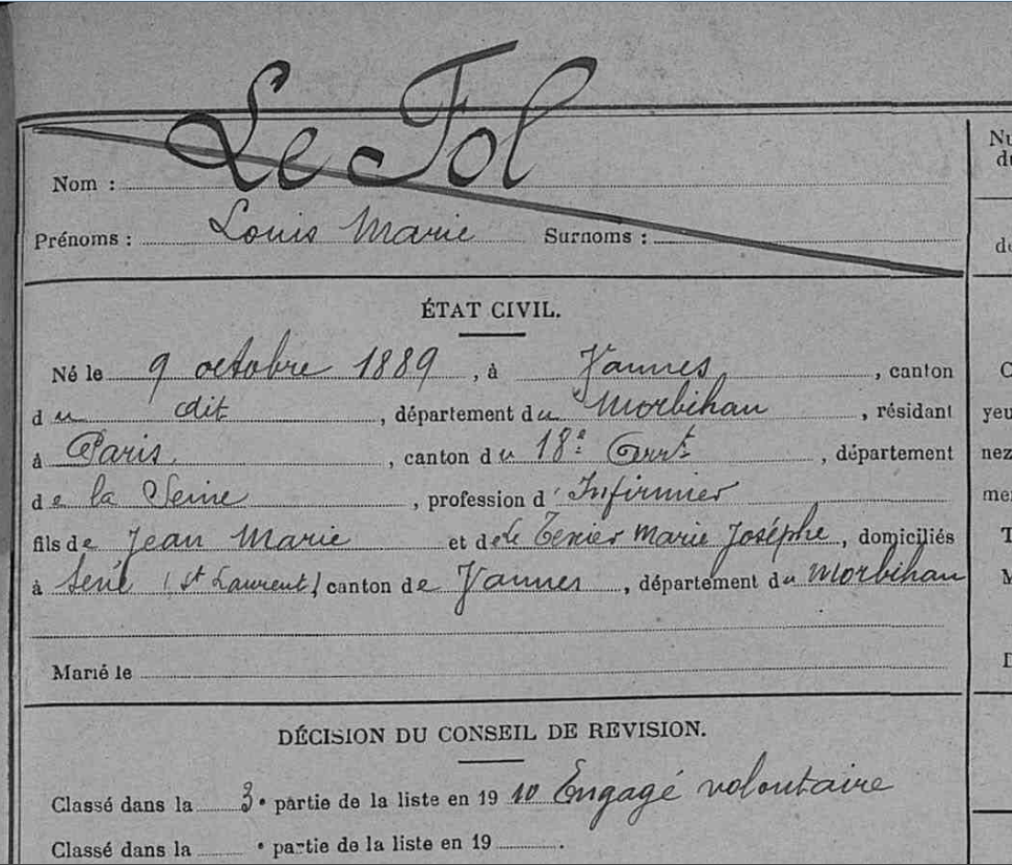 Nom : Le Fol
Prénoms : Louis Marie Surnoms :
ÉTAT CIVIL.
Né le 9 octobre 1889, à Vannes, canton
du dit, département du Morbihan, résidant
à Paris, canton du 18e Arrt, département
de la Seine, profession d'Infirmier
fils de Jean Marie et de Le Tenier Marie Josèphe, domiciliés
à Séné (St Laurent) canton de Vannes, département du Morbihan
Marié le
DÉCISION DU CONSEIL DE REVISION.
Classé dans la 3e partie de la liste en 1910 Engagé volontaire
Classé dans la e partie de la liste en 19 .